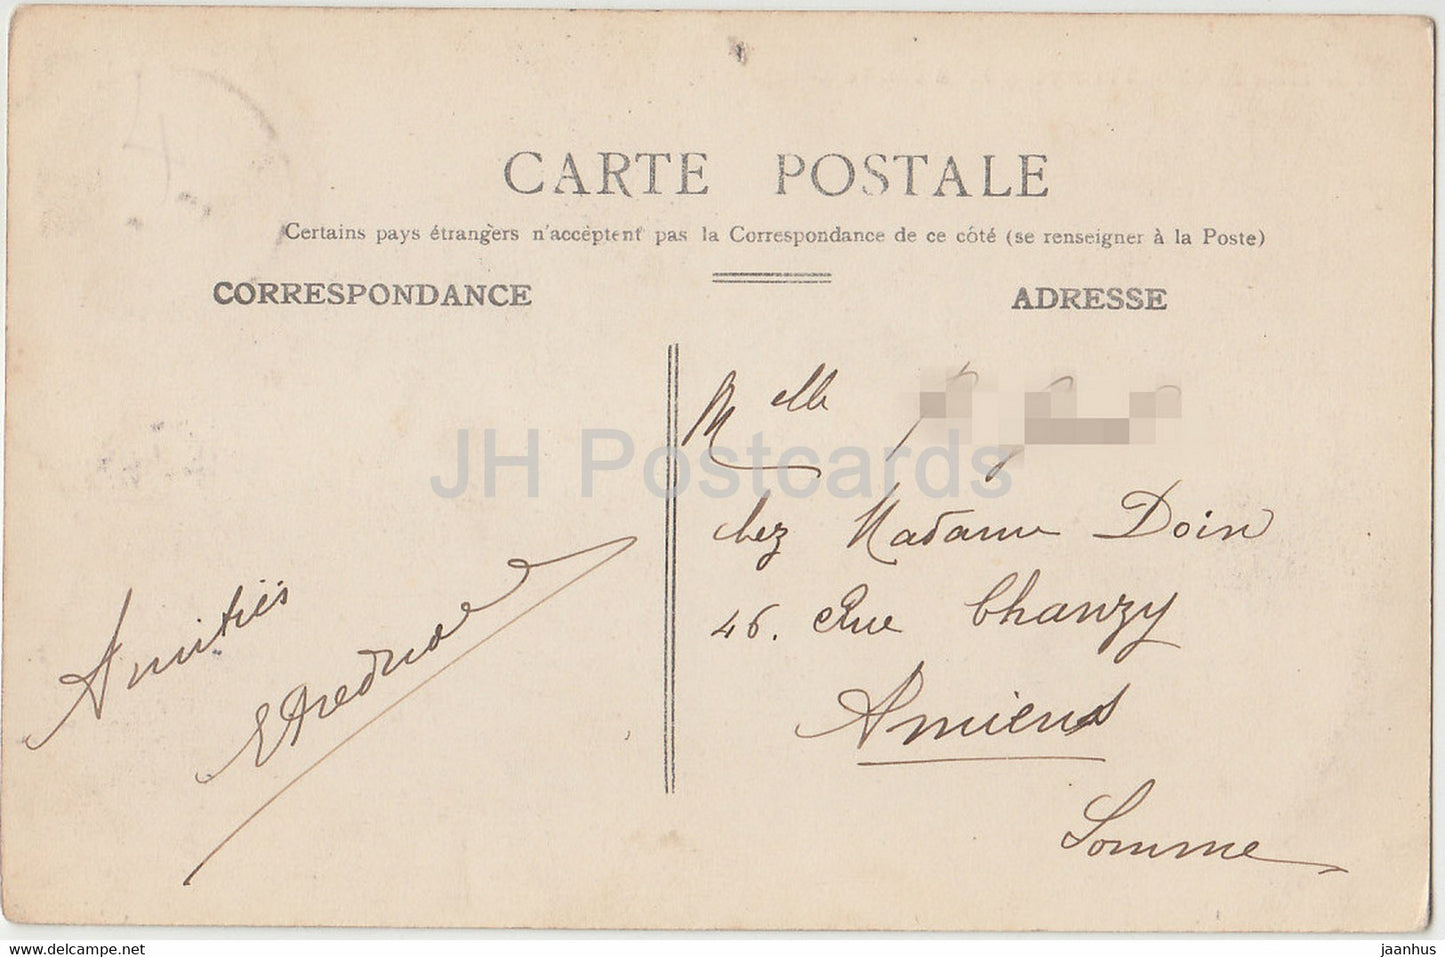 CARTE POSTALE
Certains pays étrangers n'acceptent pas la Correspondance de ce côté (se renseigner à la Poste)
CORRESPONDANCE
ADRESSE
Amitiés
Melle
chez Madame Doin
46. Rue Chanzy
Amiens
Somme
JH Postcards
www.delcampe.net
jaanhus